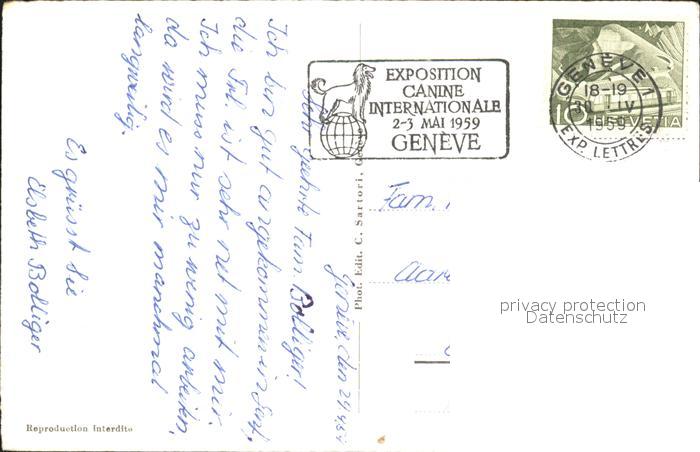 EXPOSITION
CANINE
INTERNATIONALE
2-3 MAI 1959
GENÈVE
GENÈVE 1
18-19
30. IV
1959
EXP. LETTRES
10 HELVETIA
Genève, den 29.4.59
Sehr geehrte Fam. Bolliger!
Ich bin gut angekommen in Genf,
die Frl. ist sehr net mit mir.
Ich muss nur zu wenig arbeiten,
da wird es mir manchmal
langweilig.
Es grüsst Sie
Elsbeth Bolliger
Phot. Edit. C. Sartori, Genève
Fam.
Aar
privacy protection
Datenschutz
Reproduction interdite